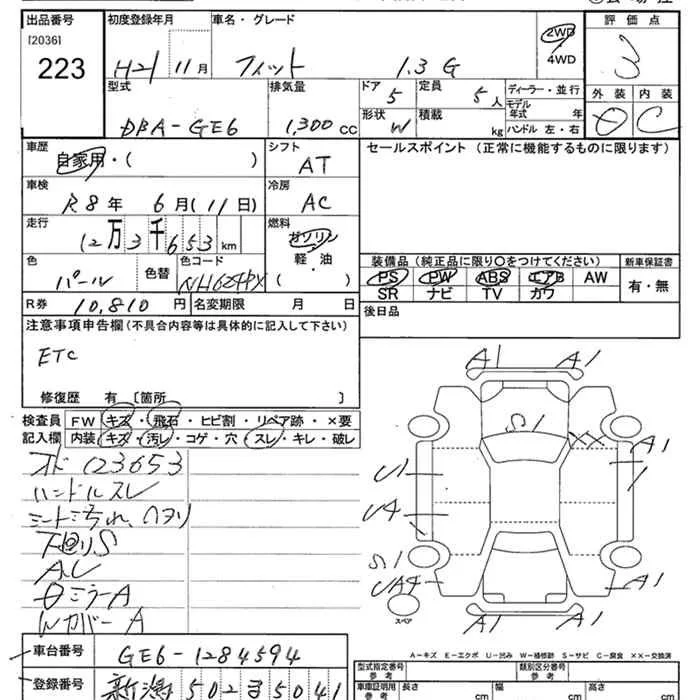 出品番号 初度登録年月 車名・グレード 評価点
[2036]
223
H21 11月 フィット 1.3 G 2WD 4WD 3
型式 排気量 ドア 5 定員 5人 ディーラー・並行
DBA-GE6 1,300 cc 形状 W 積載 kg モデル年式 年 ハンドル 左・右
外装 内装
D C
車歴 シフト セールスポイント (正常に機能するものに限ります)
自家用・( ) AT
車検 冷房
R8年 6月(11日) AC
走行 燃料
12万3千653km ガソリン
軽・油
( )
色 色替 色コード
パール NH624PX
装備品 (純正品に限り○をつけてください) 新車保証書
PS PW ABS エアB AW 有・無
SR ナビ TV カワ
R券 10,810円 名変期限 月 日
後日品
注意事項申告欄(不具合内容等は具体的に記入して下さい)
ETC
修復歴 有 [箇所 ]
検査員 FW キズ・飛石・ヒビ割・リペア跡・×要
記入欄 内装 キズ・汚れ・コゲ・穴・スレ・キレ・破レ
オド 123653
ハンドルスレ
シート汚れ、ヘタリ
下回りS
AU
ミラーA
WカバーA
A1 A1
S1
XX A1
U1
UA
S1
UA4 A1
A1 A1
スペア
A-キズ E-エクボ U-凹み W-補修跡 S-サビ C-腐食 XX-交換済
車台番号 GE6-1284594
登録番号 新潟 502 5041
型式指定番号 参考 類別区分番号 参考
車庫証明用 参考 長さ cm 幅 cm 高さ cm